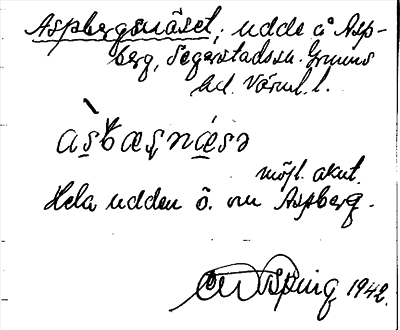 Aspbergsnäset, udde å Asp-
berg, Segerstads sn. Grums
hd. Värml. l.
asbæṣnæsə
möjl. akut.
Hela udden ö. om Aspberg.
1942.